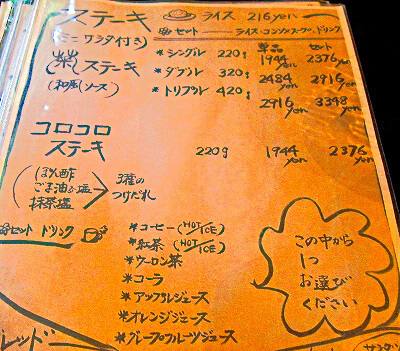 ステーキ ライス 216yen
(ミニ サラダ付き) セット ライス・コンソメスープ・ドリンク
単品 セット
ステーキ *シングル 220g 1944yen 2376yen
(和風ソース) *ダブル 320g 2484yen 2916yen
*トリプル 420g 2916yen 3348yen
コロコロ
ステーキ 220g 1944yen 2376yen
ぽん酢
ごま油&塩
抹茶塩
3種の
つけだれ
セット ドリンク
*コーヒー(HOT/ICE)
*紅茶(HOT/ICE)
*ウーロン茶
*コーラ
*アップルジュース
*オレンジジュース
*グレープフルーツジュース
この中から
1つ
お選び
ください
レッド